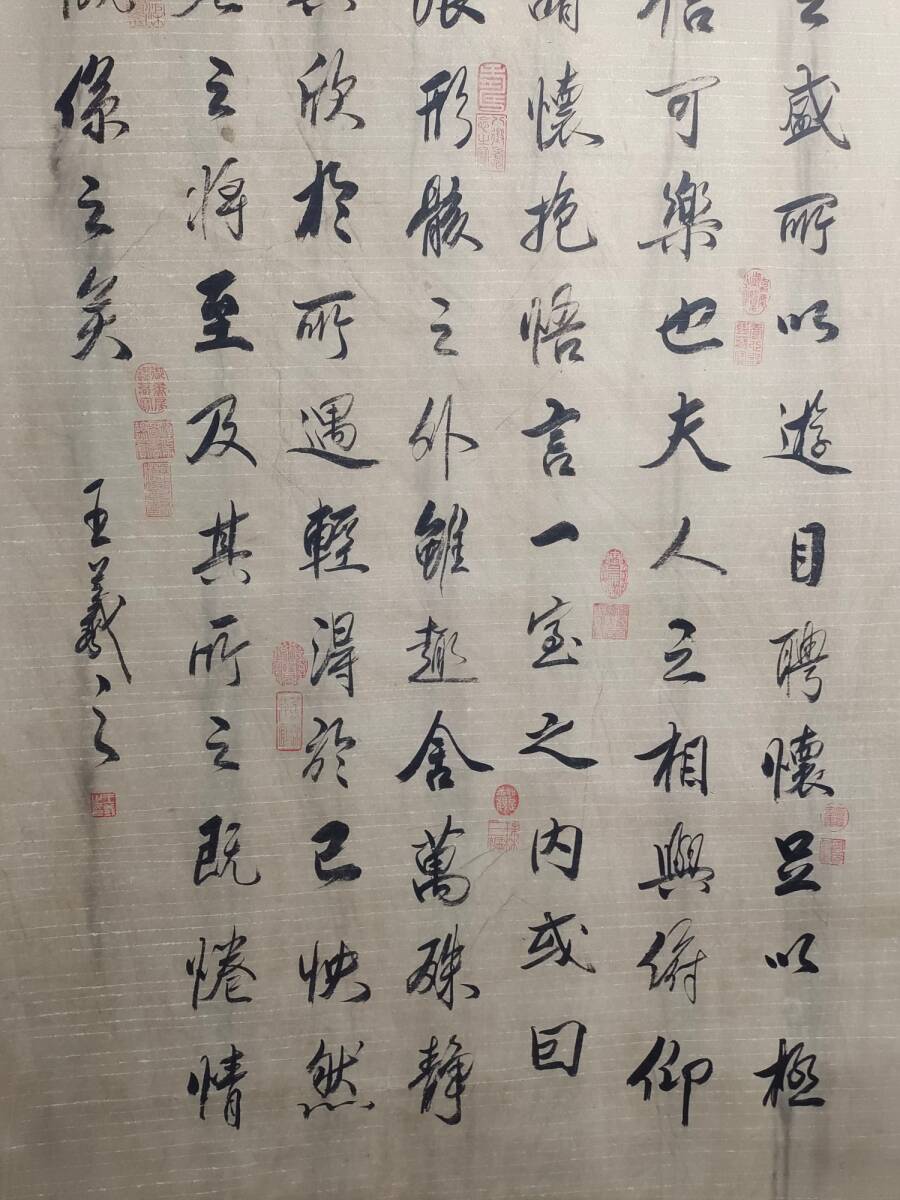 之盛所以遊目聘懷足以極
信可樂也夫人之相與俯仰
諸懷抱悟言一室之内或囙
浪形骸之外雖趣舍萬殊靜
其欣於所遇輕得於己怏然
老之將至及其所之既惓情
慨係之矣
王羲之